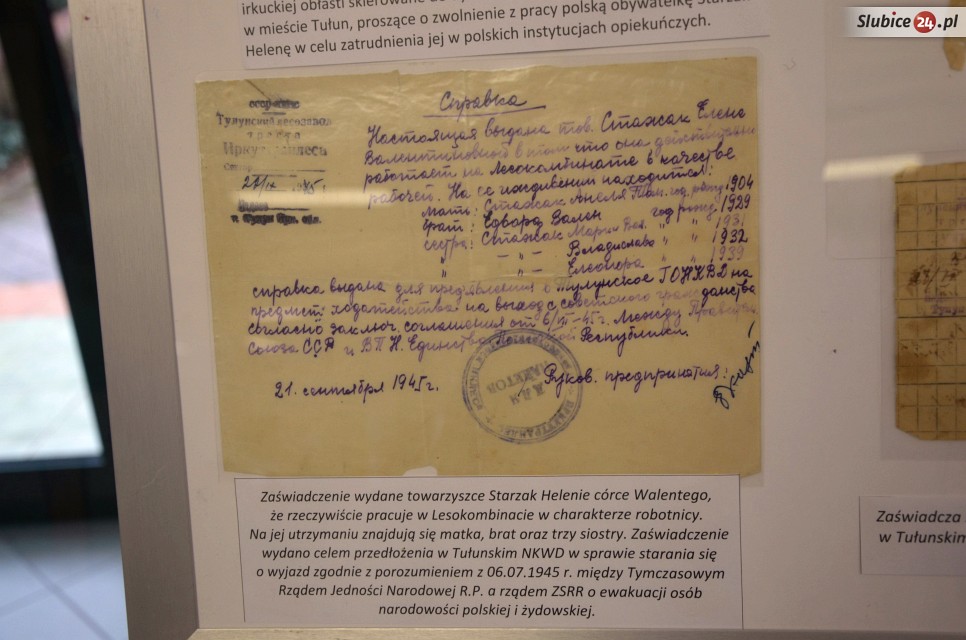 irkuckiej obłasti skierowane do
w mieście Tułun, proszące o zwolnienie z pracy polską obywatelkę
Helenę w celu zatrudnienia jej w polskich instytucjach opiekuńczych.
Slubice24.pl
Тулунский
треста
27/IX 1945 г.
Справка
Настоящая выдана тов. Стажак Елене
Валентиновной в том что она действительно
работает на Лесокомбинате в качестве
рабочей. На ее иждивении находится:
мать: Стажак Анеля год. рожд. 1904
брат: Едвард Вален год рожд. 1929
сестра: Стажак Мария " " 1931
" — " — Владислава " " 1932
" — " — Елеонора " " 1939
справка выдана для предявления в Тулунское ГОНКВД на
предмет ходатейства на выход с советского гражданства
согласно заключ. соглашения от 6/VII-45г. Между
Союза ССР и В.П.Н. Единства Республики
21. сентября 1945г. Руков. предприятия:
Zaświadczenie wydane towarzyszce Starzak Helenie córce Walentego,
że rzeczywiście pracuje w Lesokombinacie w charakterze robotnicy.
Na jej utrzymaniu znajdują się matka, brat oraz trzy siostry. Zaświadczenie
wydano celem przedłożenia w Tułunskim NKWD w sprawie starania się
o wyjazd zgodnie z porozumieniem z 06.07.1945 r. między Tymczasowym
Rządem Jedności Narodowej R.P. a rządem ZSRR o ewakuacji osób
narodowości polskiej i żydowskiej.
Zaświadcza
w Tułunskim